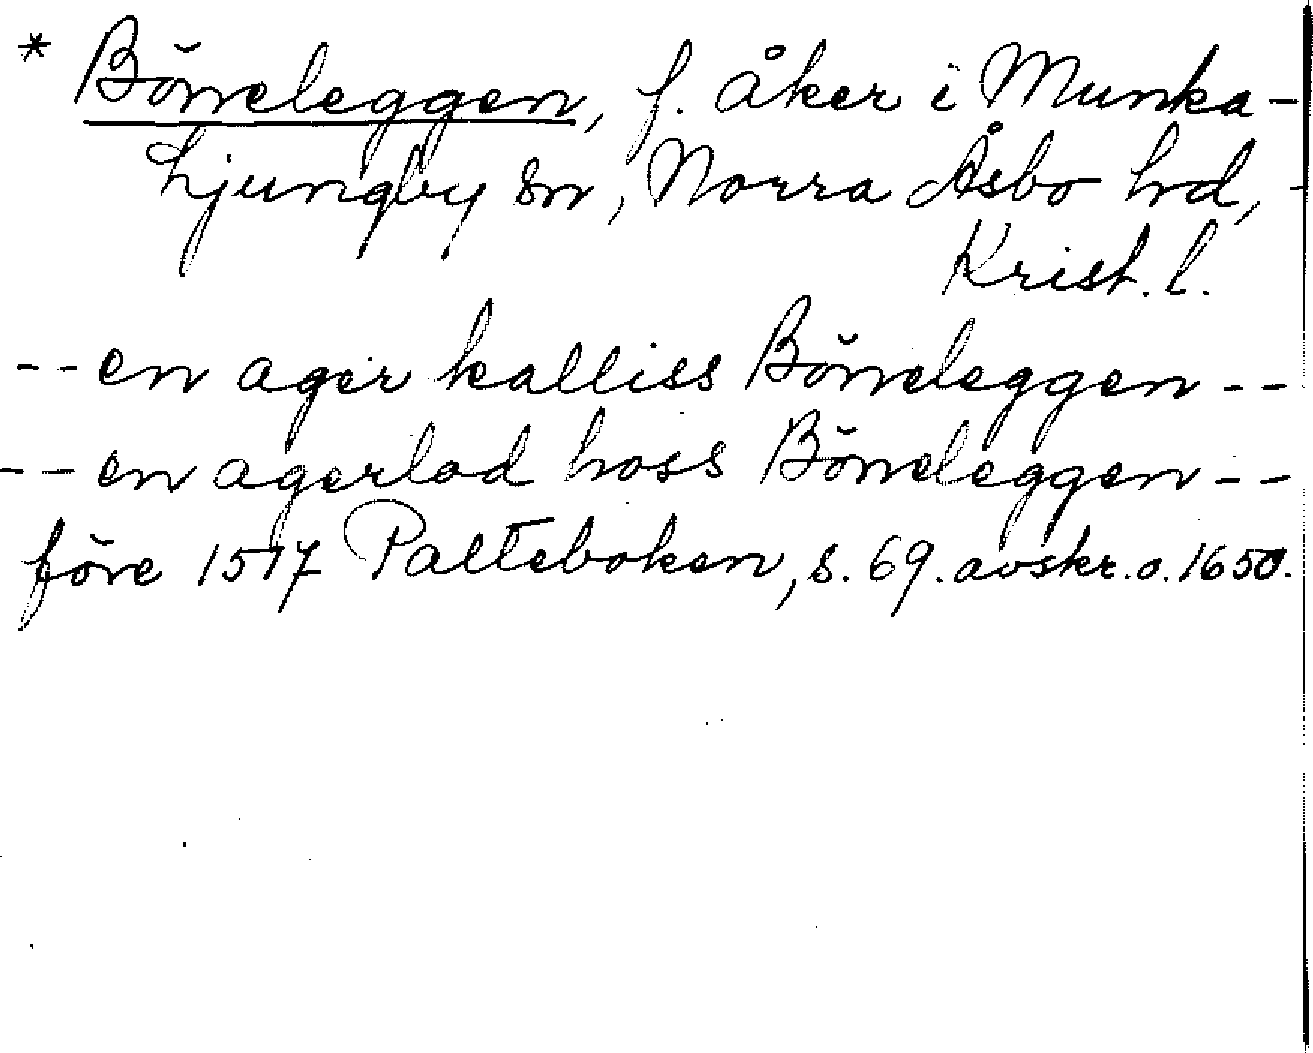 * Börreleggen, f. åker i Munka-
Ljungby sn, Norra Åsbo hd,
Krist. l.
--en ager kalliss Börreleggen--
--en agerlad hoss Börreleggen--
före 1517 Palteboken, s. 69. avskr. o. 1650.